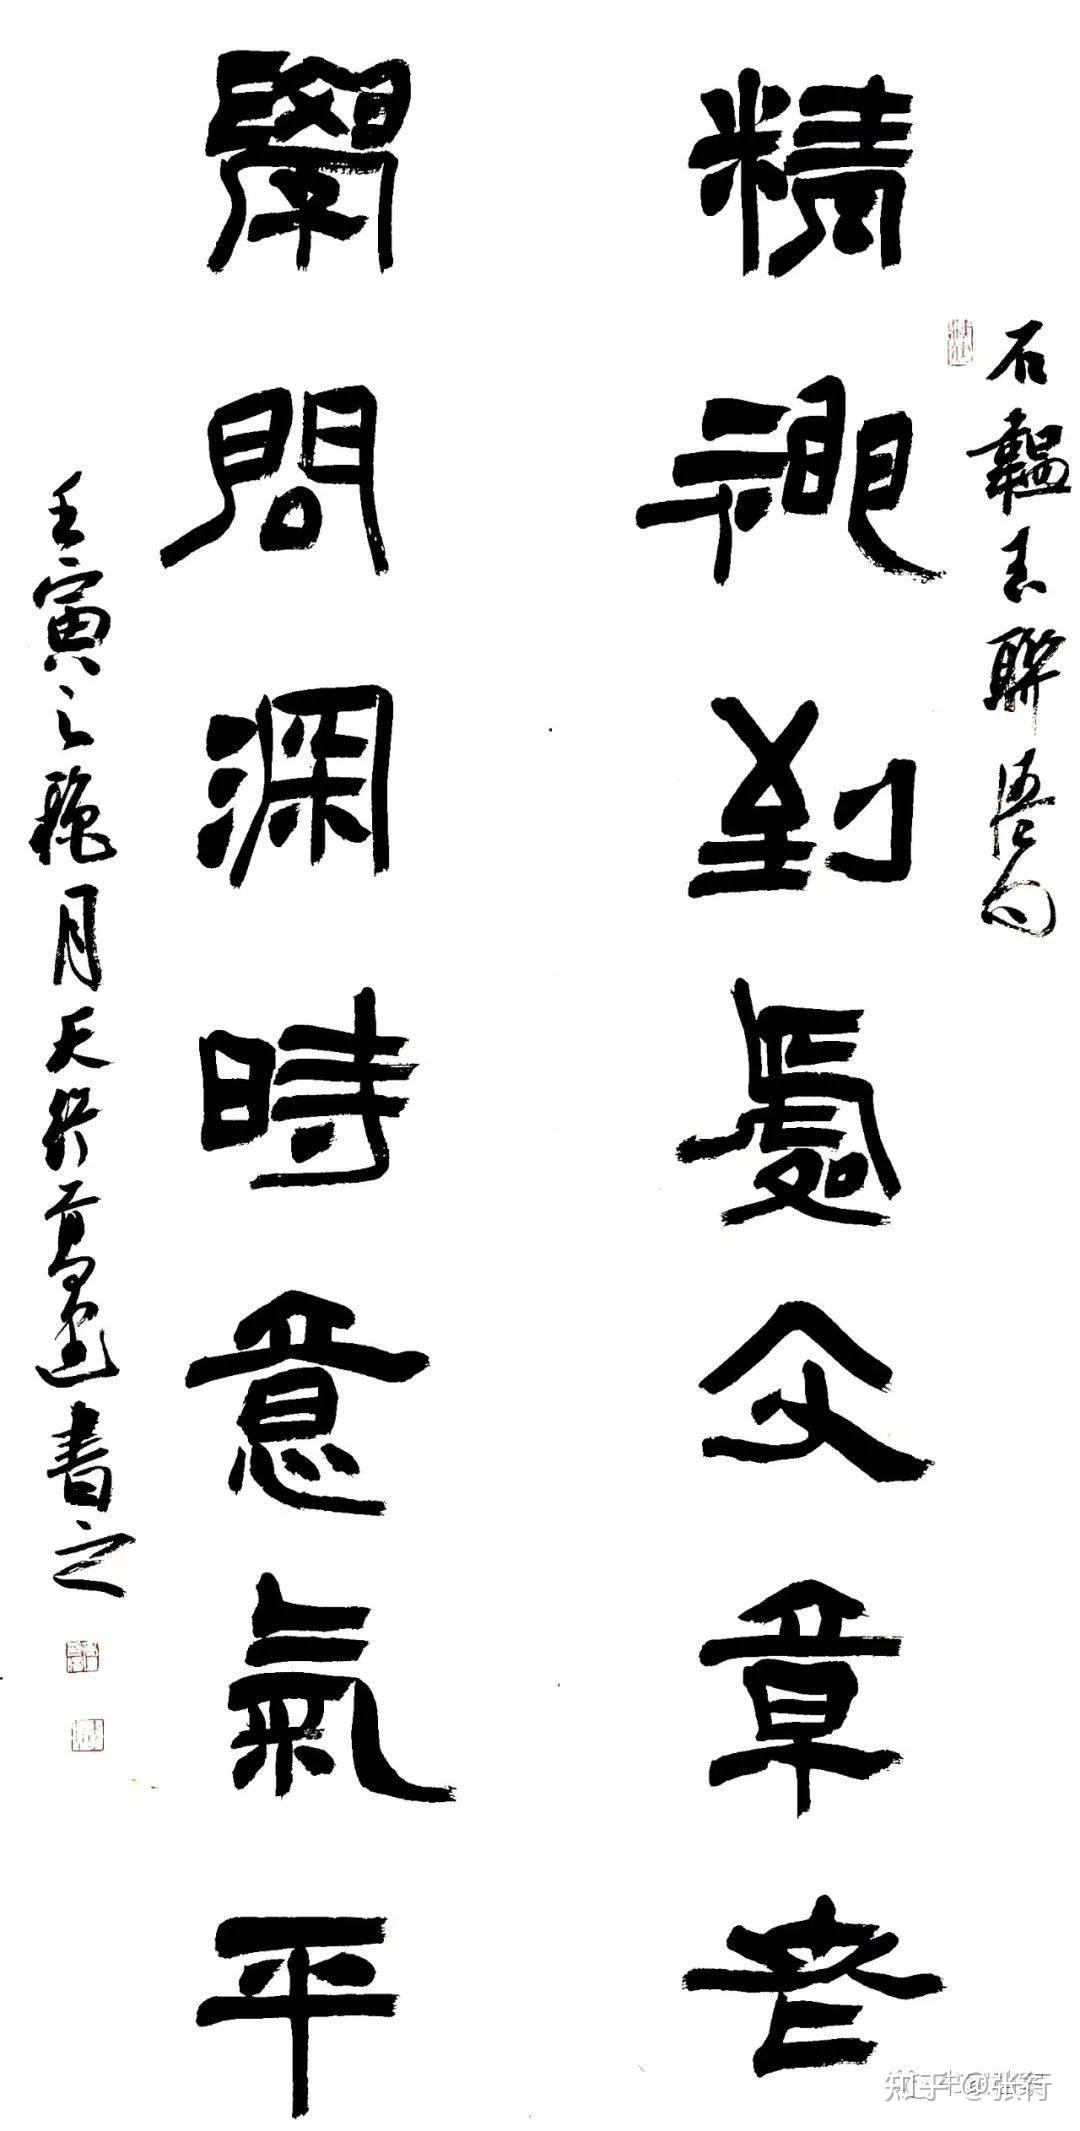 石韞玉聯語句
精神到處文章老
學問深時意氣平
壬寅之秋月天行
書之
知乎 @张行